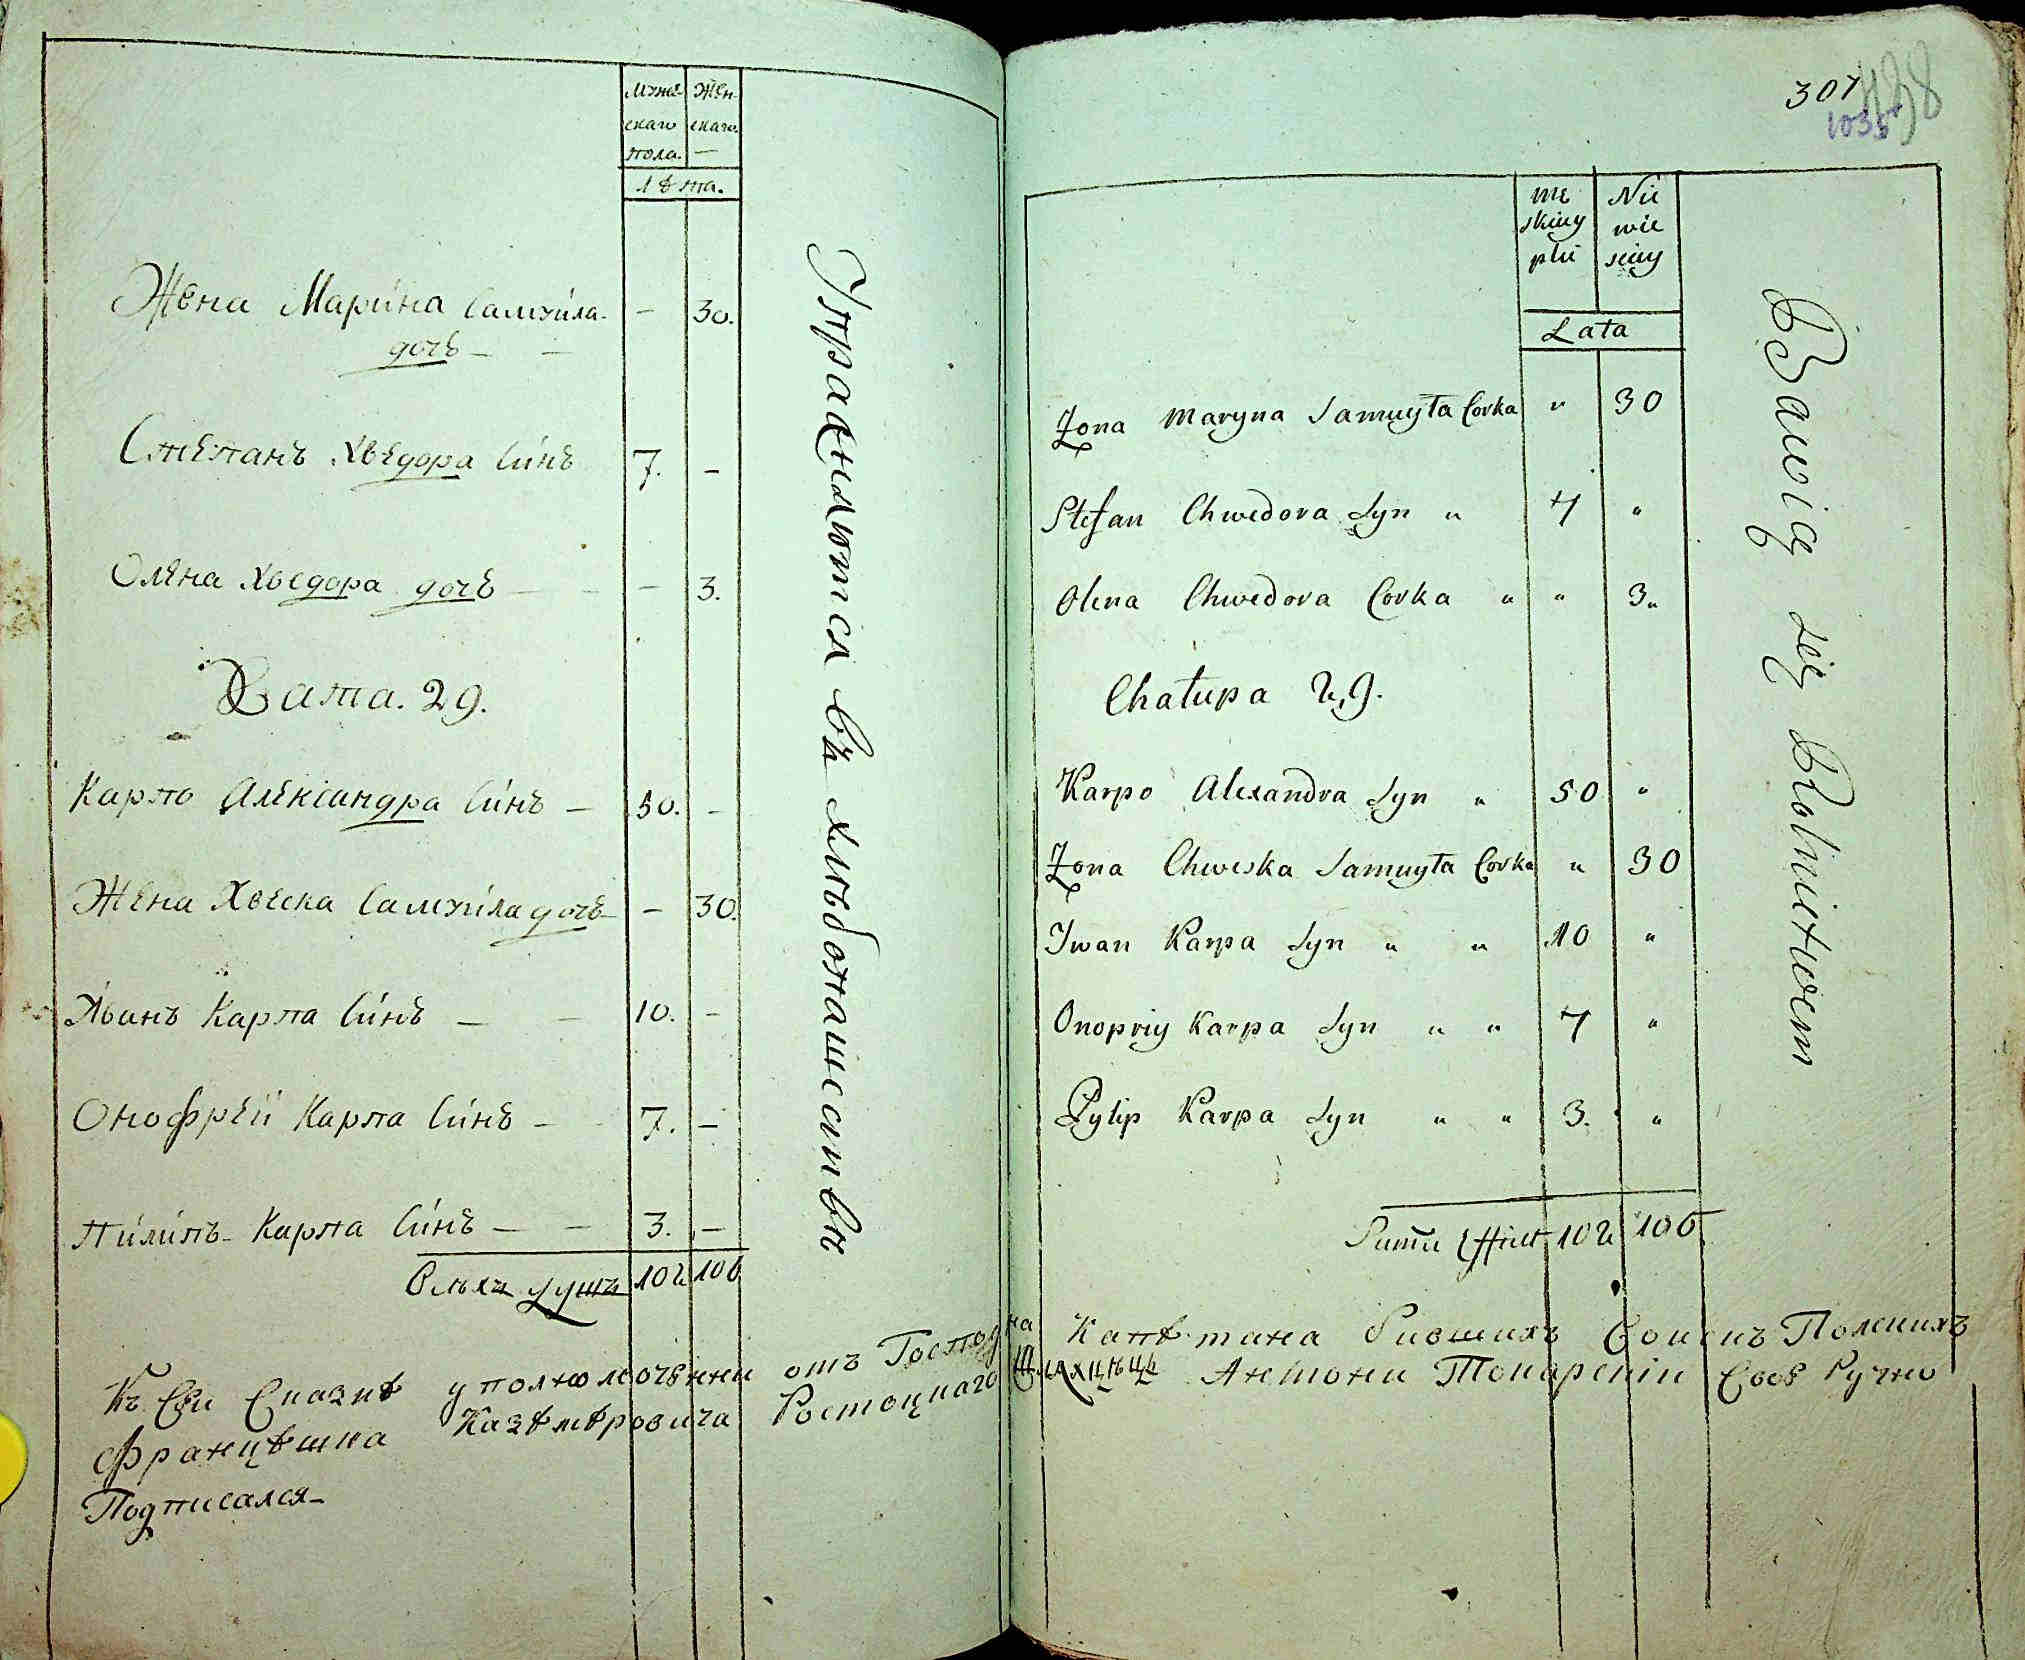 Мужескаго пола.
Женскаго.
Лѣта.
Жена Марина Самуйла дочь 30.
Степанъ Хведора Синъ 7.
Олена Хведора дочь 3.
Хата. 29.
Карпо Александра Синъ 50.
Жена Хвеска Самуйла дочь 30.
Иванъ Карпа Синъ 10.
Онофрей Карпа Синъ 7.
Пилипъ Карпа Синъ 3.
Всѣхъ душъ 102 106
Упражняются въ хлѣбопашествѣ
307
1035
męskiey płci
Niewieściey
Lata
Zona Maryna Samuyła Corka " 30
Stefan Chwedora Syn " 7 "
Olena Chwedora Corka " " 3"
Chałupa 29.
Karpo Alexandra Syn " 50 "
Zona Chweska Samuyła Corka " 30
Jwan Karpa Syn " " 10 "
Onopriy Karpa Syn " " 7 "
Pylip Karpa Syn " " 3. "
102 106
Bawią się Rolnictwem
Къ Сей Сказкѣ уполномоченни отъ Господина Капѣтана бившихъ Воискъ Полскихъ
Францѣшка Казѣмѣровича Ростоцкаго Антони Токарскіи Своеручно
Подписался